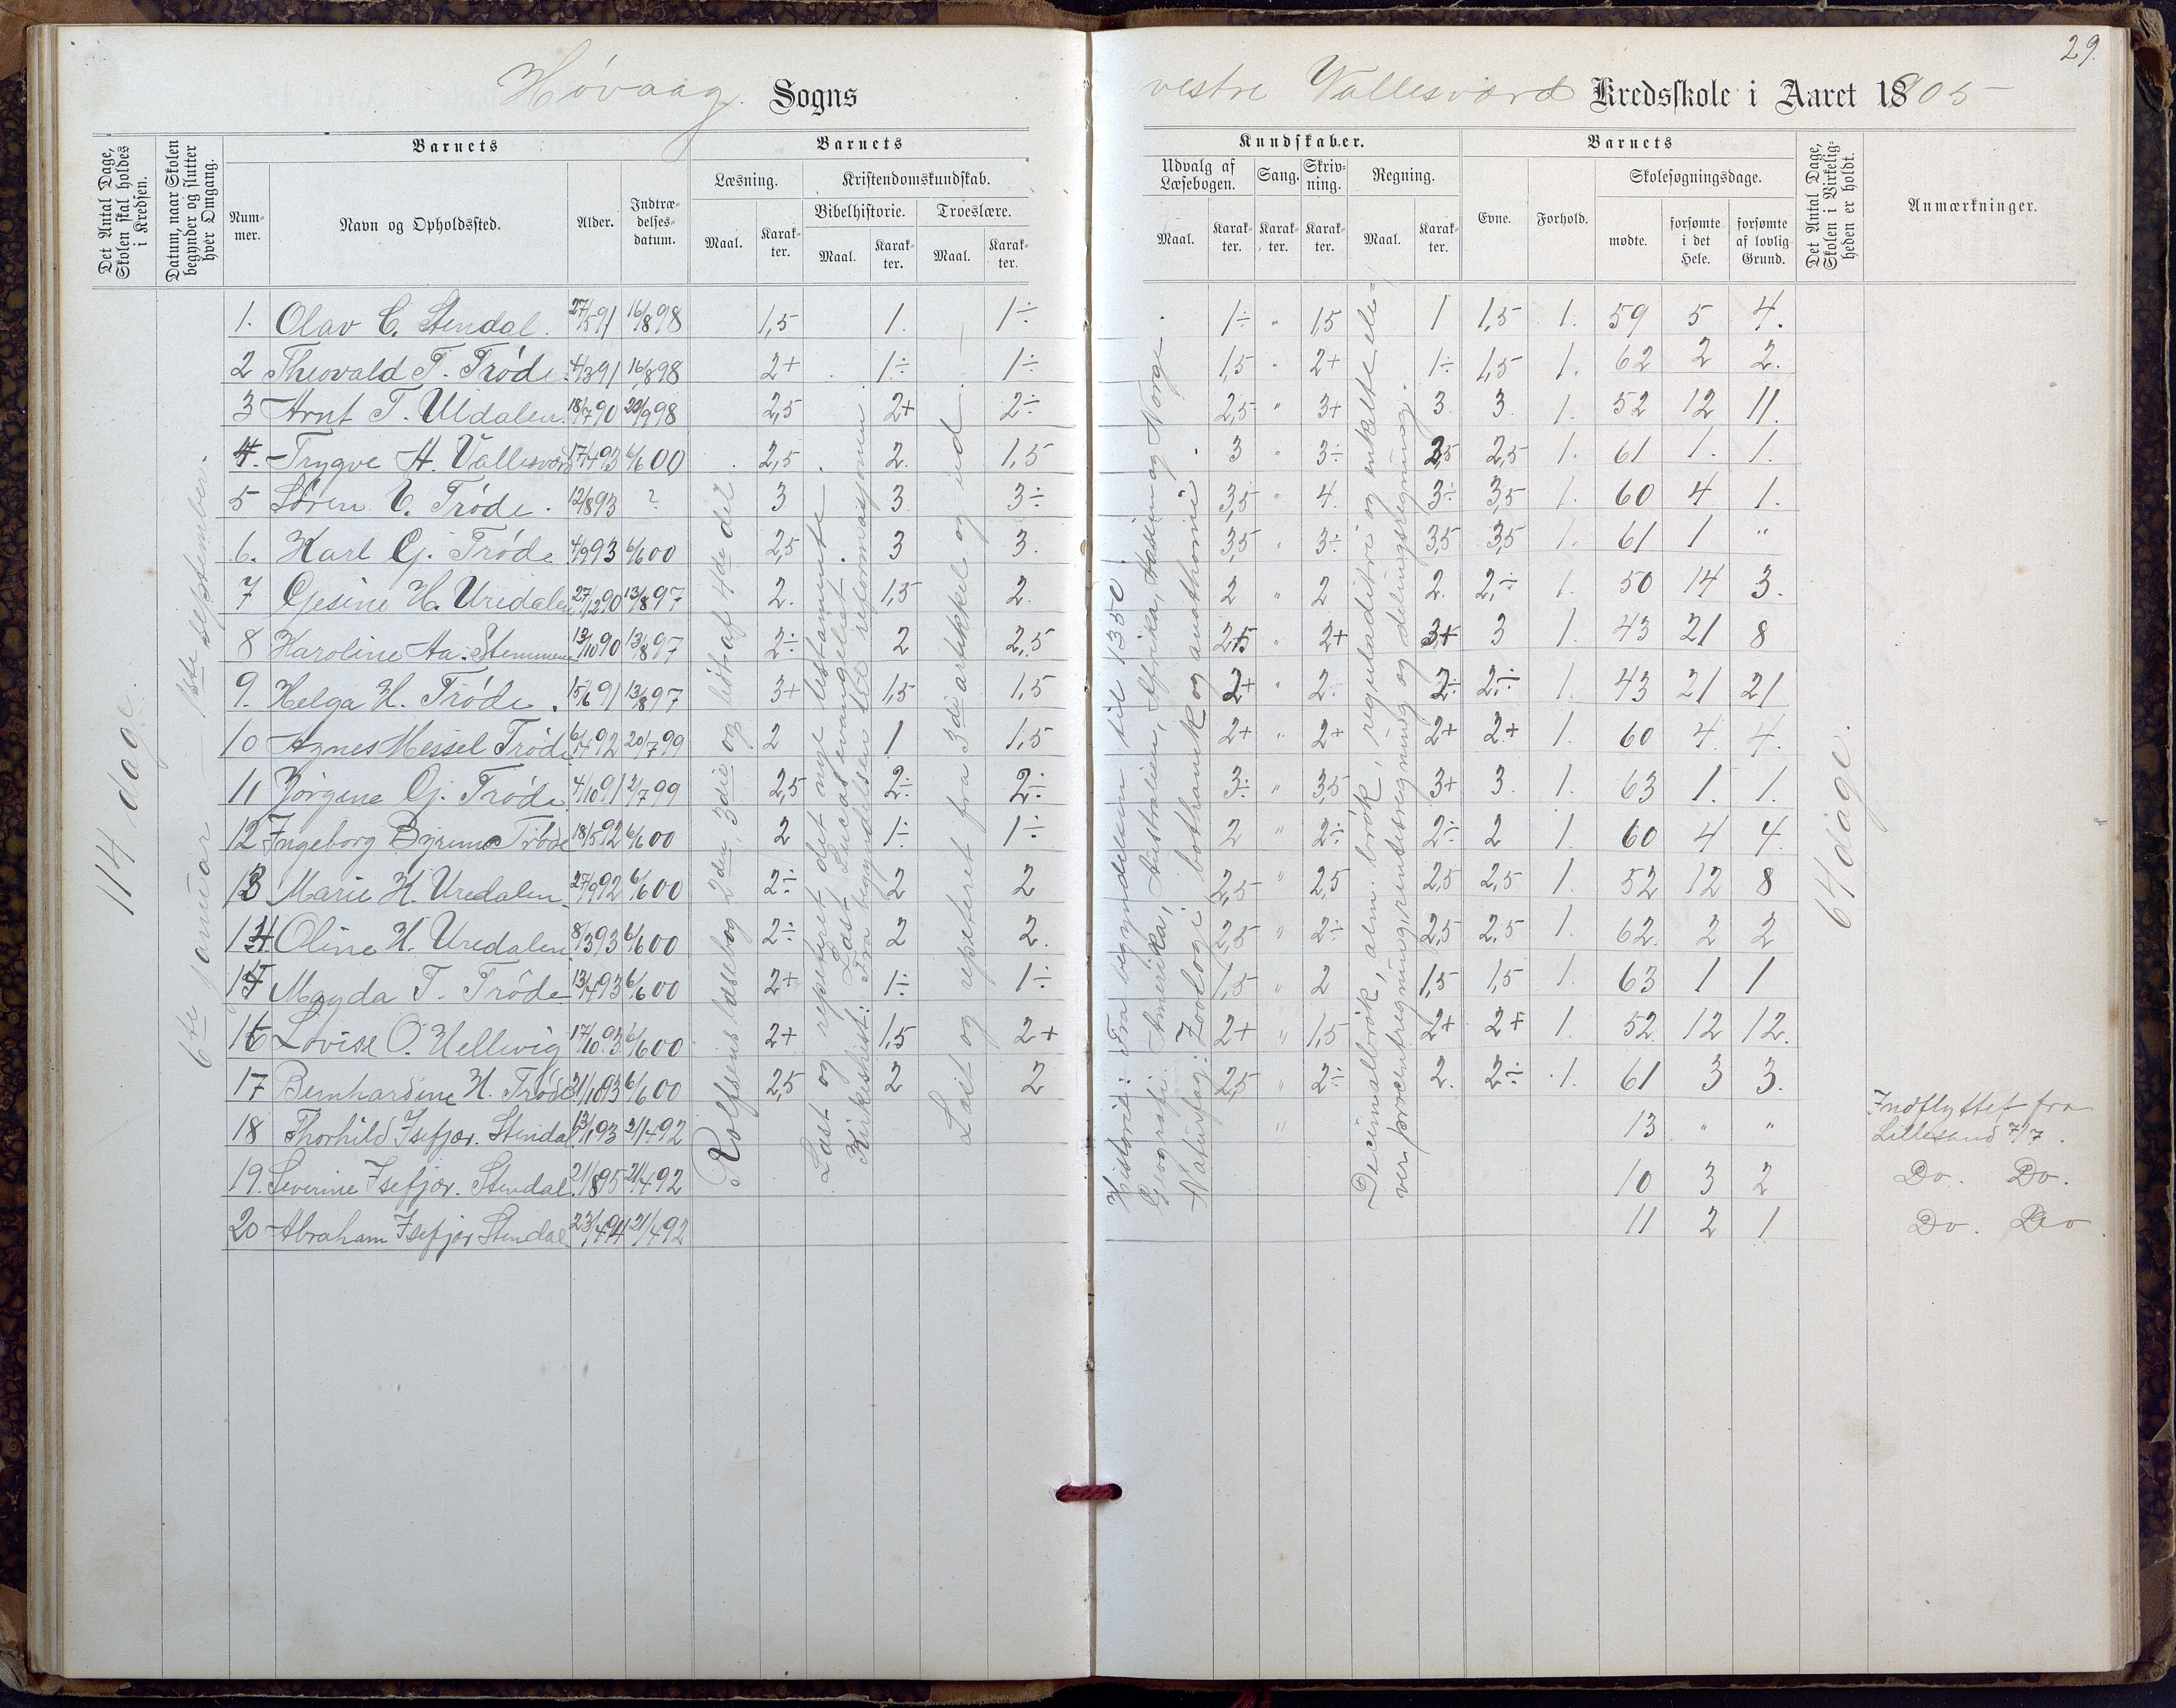 29.
Høvaag Sogns vestre Vallesværd Kredsskole i Aaret 1905
Det Antal Dage, Skolen skal holdes i Kredsen.
Datum, naar Skolen begynder og slutter hver Omgang.
Barnets
Nummer.
Navn og Opholdssted.
Alder.
Indtrædelsesdatum.
Barnets
Læsning.
Maal.
Karakter.
Kristendomskundskab.
Bibelhistorie.
Maal.
Karakter.
Troeslære.
Maal.
Karakter.
Kundskaber.
Udvalg af Læsebogen.
Maal.
Karakter.
Sang.
Karakter.
Skrivning.
Karakter.
Regning.
Maal.
Karakter.
Barnets
Evne.
Forhold.
Skolesøgningsdage.
mødte.
forsømte i det Hele.
forsømte af lovlig Grund.
Det Antal Dage, Skolen i Virkeligheden er holdt.
Anmærkninger.
114 dage.
6te januar – 1ste september.
Rolfsens læsebog 2den, 3die og lidt af 4de del
Læst og repeteret det nye testamente.
Læst Lucas evangelist.
Kirkehist: Fra begyndelsen til reformasjonen
Læst og repeteret fra 3die artikkel og ud.
Historie: Fra begyndelsen til 1350.
Geografi: Amerika, Australien, Afrika, Asien og Norge
Naturfag: Zoologi, bothanik og anathomi
Decimalbrøk, alm. brøk, reguladitri og enkelte elever procentregning, rentesregning og delingsregning.
64 dage.
1. Olav C. Stendal. 27/5 91 16/8 98 1,5 1. 1÷ 1÷ " 1,5 1 1,5 1. 59 5 4.
2 Theovald T. Trøde. 4/3 91 16/8 98 2+ 1÷ 1÷ 1,5 " 2+ 1÷ 1,5 1. 62 2 2.
3 Arnt T. Uldalen 18/7 90 22/9 98 2,5 2+ 2÷ 2,5 " 3+ 3. 3 1. 52 12 11.
4. Trygve A. Vallesværd 17/4 93 6/6 00 2,5 2. 1,5 3 " 3÷ 2,5 2,5 1. 61 1. 1.
5 Søren C. Trøde. 12/8 93 ? 3 3 3÷ 3,5 " 4. 3÷ 3,5 1. 60 4 1.
6. Karl G. Trøde 4/9 93 6/6 00 2,5 3 3. 3,5 " 3÷ 3,5 3,5 1. 61 1 "
7 Gesine H. Uredalen 27/12 90 13/8 97 2. 1,5 2. 2 " 2 2. 2÷ 1. 50 14 3.
8 Karoline Aa. Stemmene 13/10 90 13/8 97 2÷ 2 2,5 2,5 " 2+ 3+ 3 1. 43 21 8
9. Helga H. Trøde. 15/6 91 13/8 97 3+ 1,5 1,5 2+ " 2. 2÷ 2÷ 1. 43 21 21
10 Agnes Messel Trøde 6/4 92 20/7 99 2 1 1,5 2+ " 2+ 2+ 2+ 1. 60 4. 4.
11 Jørgine G. Trøde 4/10 91 2/7 99 2,5 2÷ 2÷ 3÷ " 3,5 3+ 3. 1. 63 1. 1.
12 Ingeborg Trøde 18/5 92 6/6 00 2 1÷ 1÷ 2 " 2÷ 2÷ 2 1. 60 4 4.
13 Marie H. Uredalen 27/9 92 6/6 00 2÷ 2 2 2,5 " 2,5 2,5 2,5 1. 52 12 8
14 Oline H. Uredalen 8/3 93 6/6 00 2÷ 2 2. 2,5 " 2÷ 2,5 2,5 1. 62. 2 2
15 Magda T. Trøde 13/4 93 6/6 00 2+ 1÷ 1÷ 1,5 " 2 1,5 1,5 1. 63 1 1
16 Lovise O. Hellevig 17/10 93 6/6 00 2+ 1,5 2+ 2+ " 1,5 2+ 2+ 1. 52. 12 12.
17 Bernhardine H. Trøde 31/10 93 6/6 00 2,5 2 2 2,5 " 2÷ 2. 2÷ 1. 61 3 3.
18 Thorhild Isefjær. Stendal 13/1 93 21/4 92 " 13 " " Indflyttet fra Lillesand 7/7.
19. Severine Isefjær. Stendal 21/8 95 21/4 92 10 3 2 Do. Do.
20 Abraham Isefjær Stendal 23/4 94 21/4 92 11 2 1 Do. Do